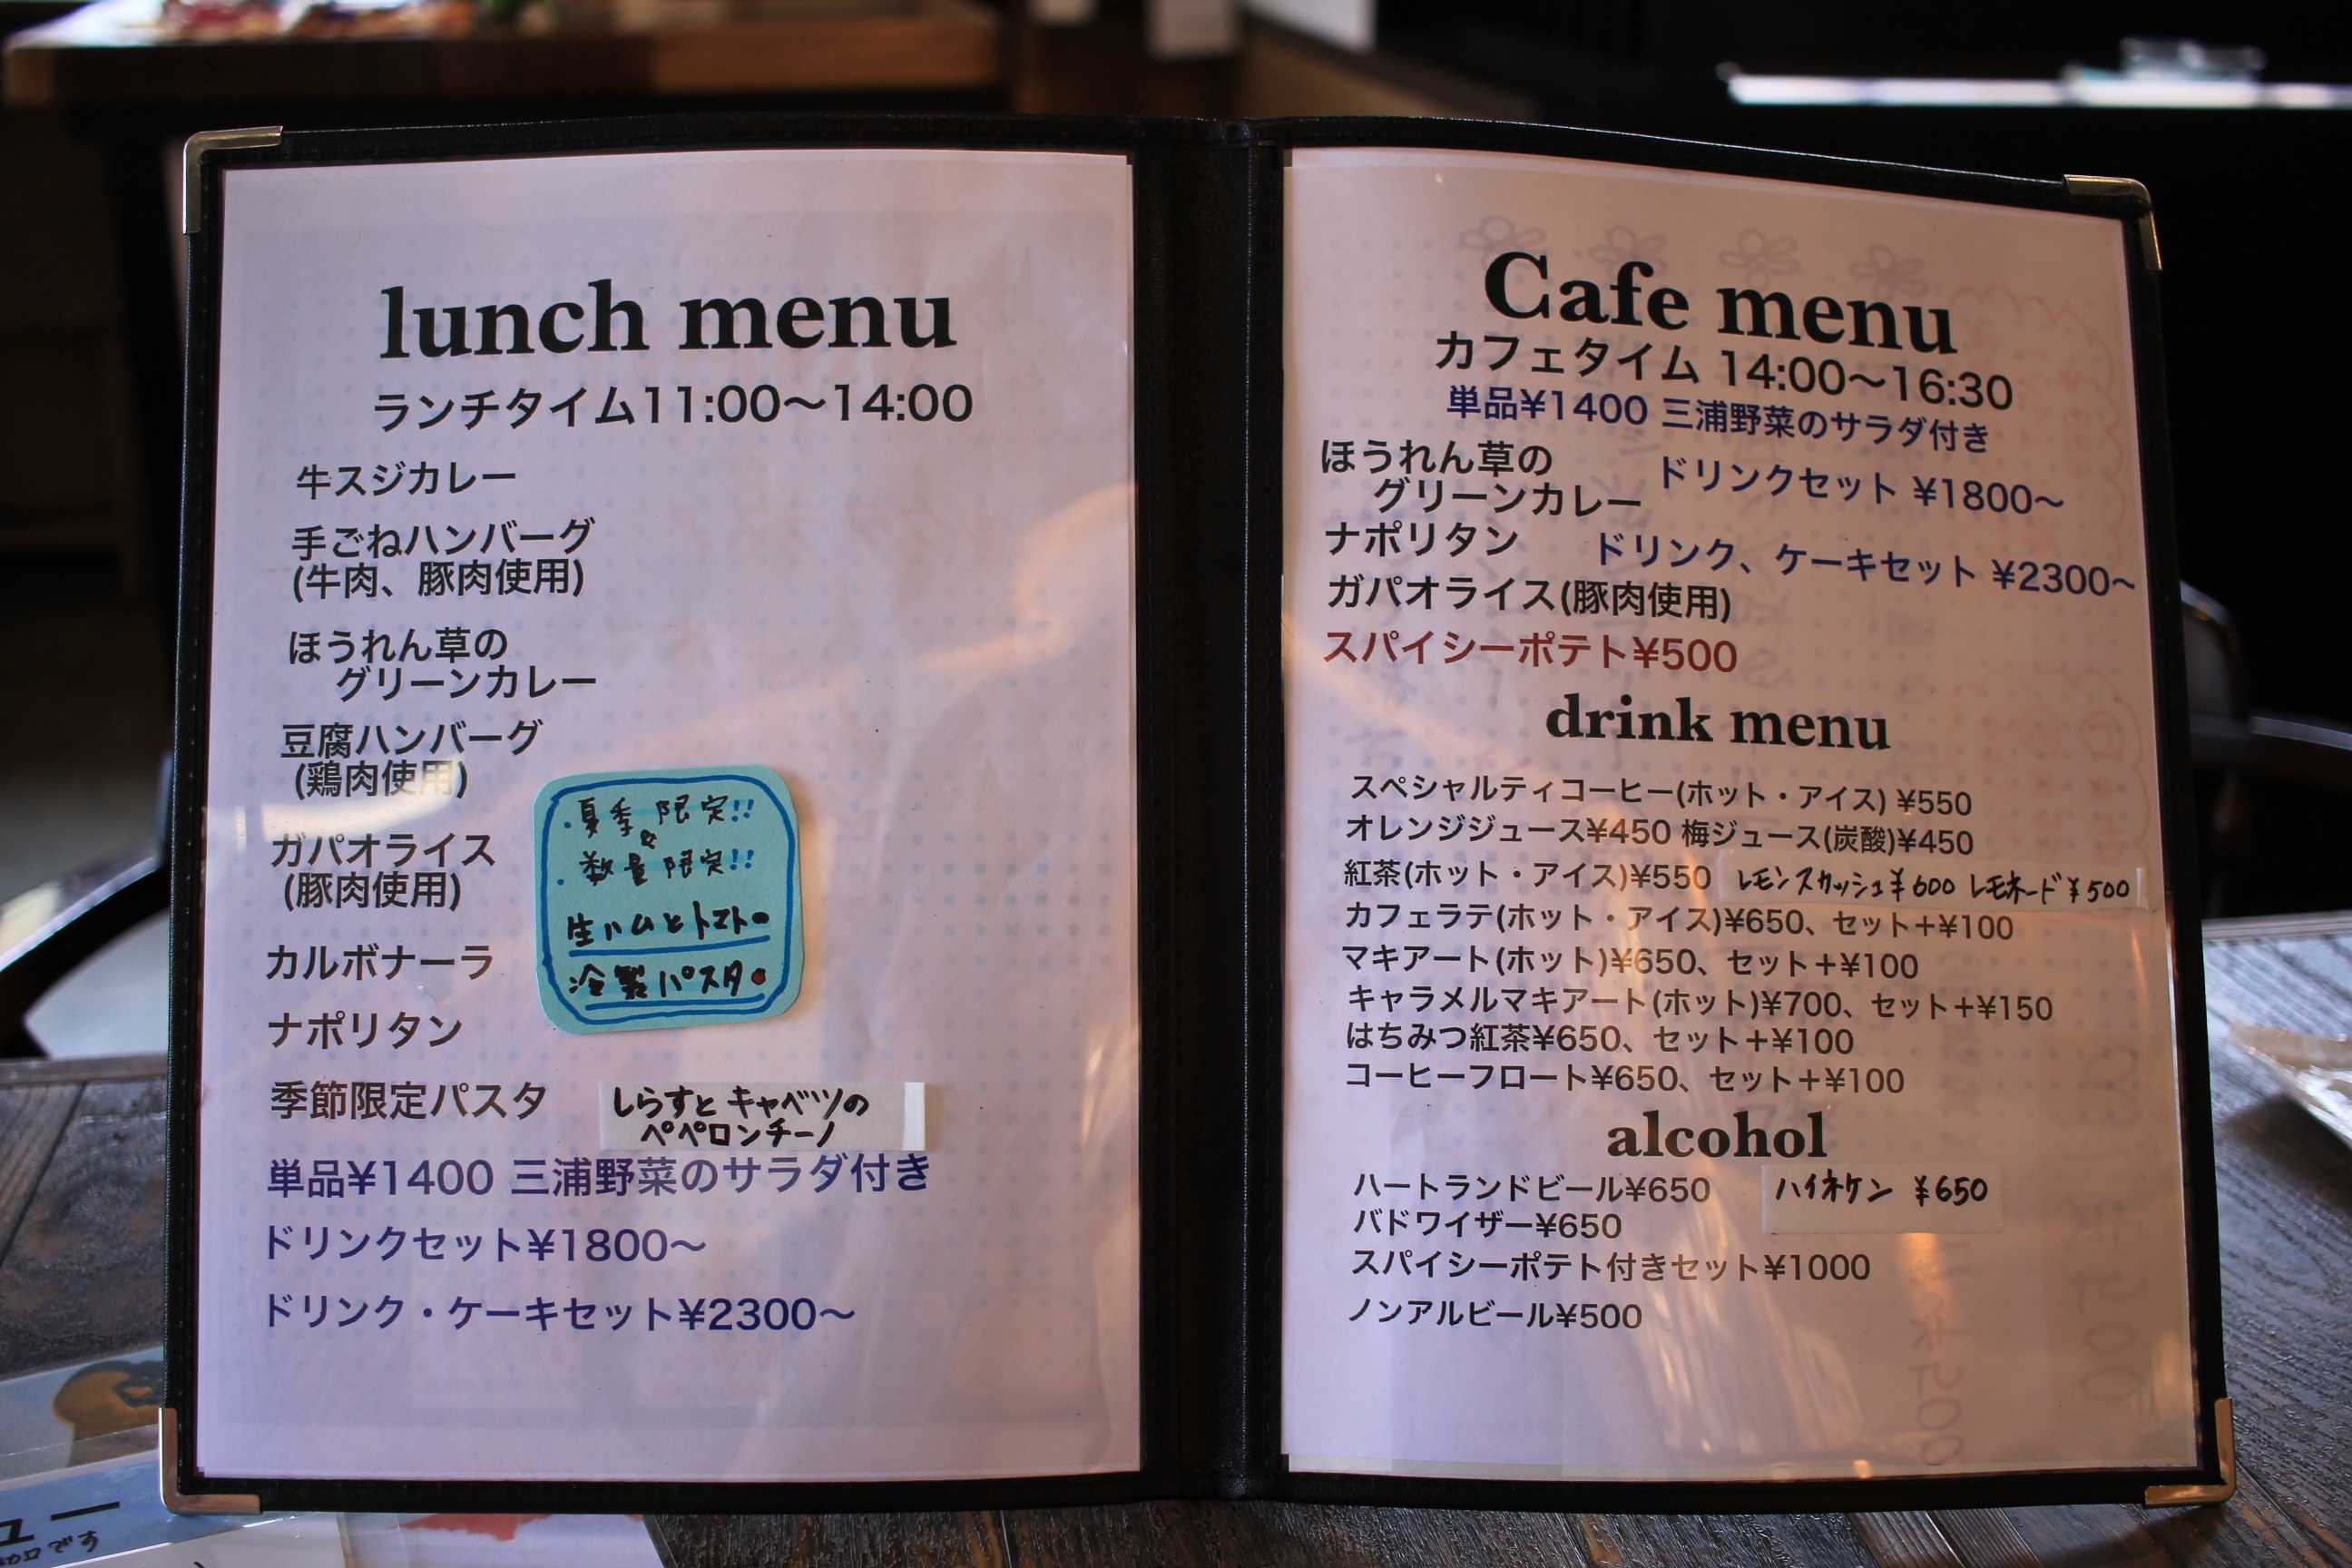 lunch menu
ランチタイム11:00〜14:00
牛スジカレー
手ごねハンバーグ
(牛肉、豚肉使用)
ほうれん草の
グリーンカレー
豆腐ハンバーグ
(鶏肉使用)
ガパオライス
(豚肉使用)
カルボナーラ
ナポリタン
季節限定パスタ
しらすとキャベツの
ペペロンチーノ
・夏季限定!!
&
・数量限定!!
生ハムとトマトの
冷製パスタ
単品¥1400 三浦野菜のサラダ付き
ドリンクセット¥1800〜
ドリンク・ケーキセット¥2300〜
Cafe menu
カフェタイム 14:00〜16:30
単品¥1400 三浦野菜のサラダ付き
ほうれん草の
グリーンカレー
ドリンクセット ¥1800〜
ナポリタン
ドリンク、ケーキセット ¥2300〜
ガパオライス(豚肉使用)
スパイシーポテト¥500
drink menu
スペシャルティコーヒー(ホット・アイス) ¥550
オレンジジュース¥450 梅ジュース(炭酸)¥450
紅茶(ホット・アイス)¥550 レモンスカッシュ¥600 レモネード¥500
カフェラテ(ホット・アイス)¥650、セット+¥100
マキアート(ホット)¥650、セット+¥100
キャラメルマキアート(ホット)¥700、セット+¥150
はちみつ紅茶¥650、セット+¥100
コーヒーフロート¥650、セット+¥100
alcohol
ハートランドビール¥650 ハイネケン ¥650
バドワイザー¥650
スパイシーポテト付きセット¥1000
ノンアルビール¥500